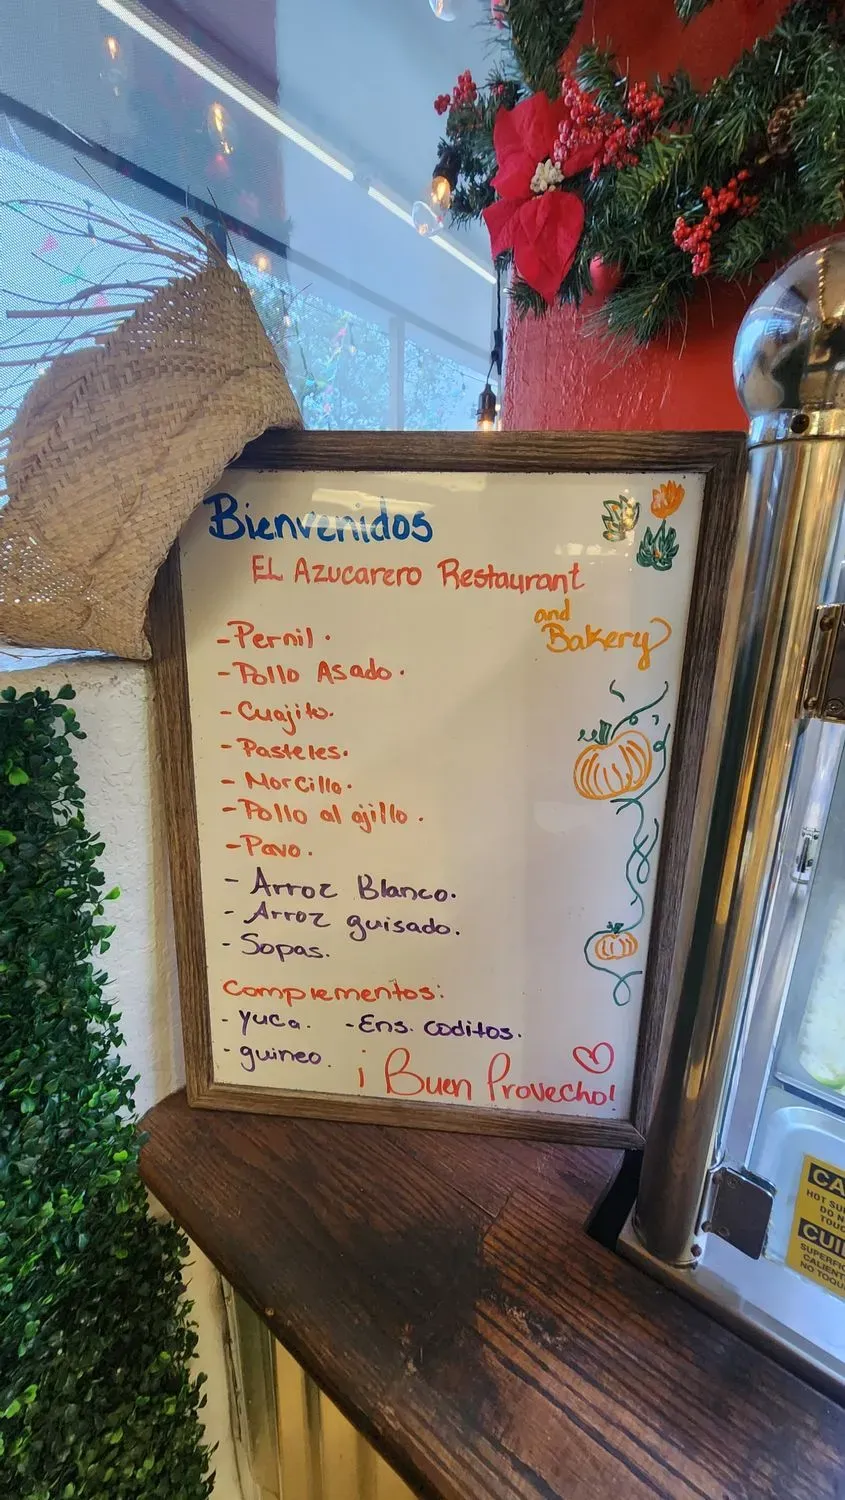 Bienvenidos
EL Azucarero Restaurant
and
Bakery
- Pernil.
- Pollo Asado.
- Cuajito.
- Pasteles.
- Morcilla.
- Pollo al ajillo.
- Pavo.
- Arroz Blanco.
- Arroz guisado.
- Sopas.
Complementos:
- Yuca. - Ens. Coditos.
- guineo.
¡Buen Provecho!
CA
HOT SU
DO N
TOUC
CUI
SUPERFIC
CALIENT
NO TOQU